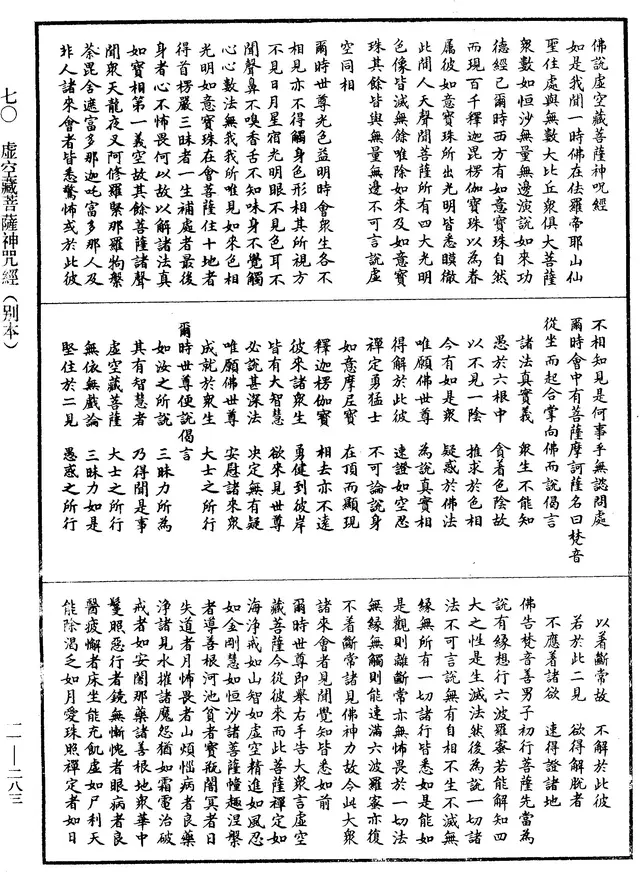 佛說虛空藏菩薩神呪經
如是我聞一時佛在佉羅帝耶山仙
聖住處與無數大比丘眾俱大菩薩
眾數如恒沙無量無邊演說如來功
德經已爾時西方有如意寶珠自然
而現百千釋迦毘楞伽寶珠以為眷
屬彼如意寶珠所出光明皆悉映徹
此間人天聲聞菩薩所有四大光明
色像皆滅無餘唯除如來及如意寶
珠其餘皆與無量無邊不可言說虛
空同相
爾時世尊光色益明時會眾生各不
相見亦不得觸身色形相其所視方
不見日月星宿光明眼不見色耳不
聞聲鼻不嗅香舌不知味身不覺觸
心心數法無我我所唯見如來色相
光明如意寶珠在會菩薩住十地者
得首楞嚴三昧者一生補處者最後
身者心不怖畏何以故以解諸法真
如實相第一義空故其餘菩薩諸聲
聞眾天龍夜叉阿修羅緊那羅拘槃
荼毘舍遮富多那迦吒富多那人及
非人諸來會者皆悉驚怖或於此彼
不相知見是何事乎無諮問處
爾時會中有菩薩摩訶薩名曰梵音
從坐而起合掌向佛而說偈言
諸法真實義 眾生不能知
愚於六根中 貪着色陰故
以不見一陰 推求於色相
今有如是眾 疑惑於佛法
唯願佛世尊 為說真實相
得解於此彼 速證如空忍
禪定勇猛士 不可論說身
如意摩尼寶 在頂而顯現
釋迦楞伽寶 相去亦不遠
彼來諸眾生 勇健到彼岸
皆有大智慧 欲來見世尊
必說甚深法 決定無有疑
唯願佛世尊 安慰諸來眾
成就於眾生 大士之所行
爾時世尊便說偈言
如汝之所說 三昧力所為
其有智慧者 乃得聞是事
虛空藏菩薩 大士之所行
無依無戲論 三昧力如是
堅住於二見 愚惑之所行
以着斷常故 不解於此彼
若於此二見 欲得解脫者
不應着諸欲 速得證諸地
佛告梵音善男子初行菩薩先當為
說有緣想行六波羅蜜若能解知四
大之性是生滅法然後為說一切諸
法不可言說無有自相不生不滅無
緣無所有一切諸行皆悉如是能如
是觀則離斷常亦無怖畏於一切法
無緣無觸則能速滿六波羅蜜亦復
不着斷常諸見佛神力故今此大眾
諸來會者見聞覺知皆悉如前
爾時世尊即舉右手告大眾言虛空
藏菩薩今從彼來而此菩薩禪定如
海淨戒如山智如虛空精進如風忍
如金剛慧如恒沙諸菩薩幢趣涅槃
者導善根河池貧者寶瓶闇冥者日
失道者月怖畏者山煩惱病者良藥
淨諸見水摧諸魔怨猶如霜雹治破
戒者如安闍那藥諸善根地眾華中
鬘照惡行者鏡無慚愧者眼病者良
醫疲懈者床坐能充飢虛如尸利天
能除渴乏如月愛珠照禪定者如日
七〇 虛空藏菩薩神咒經（别本）
二一—二八三